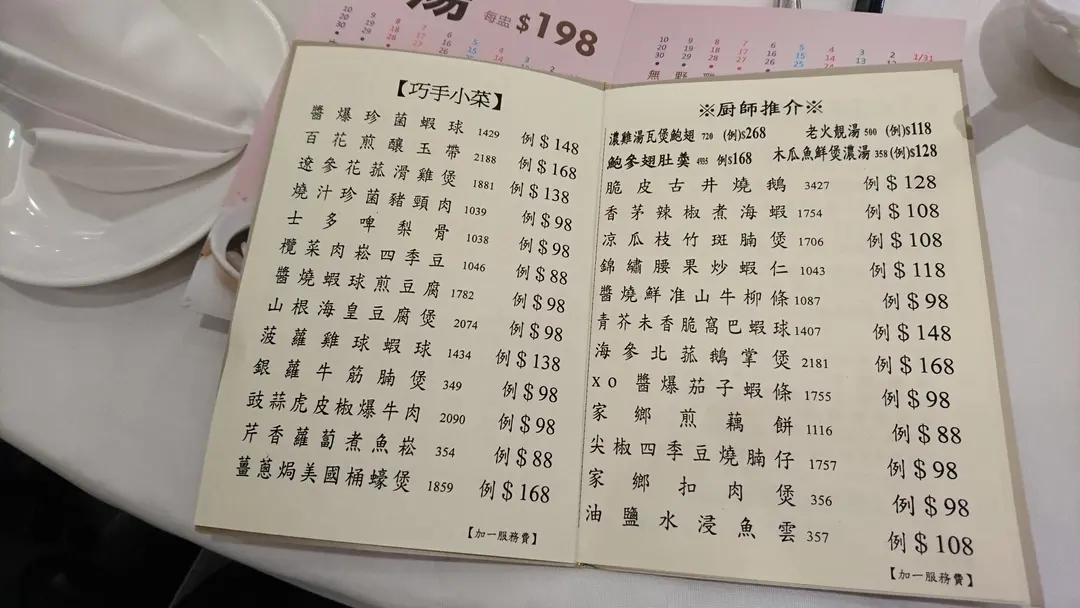 湯 每盅 $198
【巧手小菜】
醬爆珍菌蝦球 1429 例$148
百花煎釀玉帶 2188 例$168
遼參花菰滑雞煲 1881 例$138
燒汁珍菌豬頸肉 1039 例$98
士多啤梨骨 1038 例$98
欖菜肉崧四季豆 1046 例$88
醬燒蝦球煎豆腐 1782 例$98
山根海皇豆腐煲 2074 例$98
菠蘿雞球蝦球 1434 例$138
銀蘿牛筋腩煲 349 例$98
豉蒜虎皮椒爆牛肉 2090 例$98
芹香蘿蔔煮魚崧 354 例$88
薑蔥焗美國桶蠔煲 1859 例$168
【加一服務費】
※厨師推介※
濃雞湯瓦煲鮑翅 720 (例)$268 老火靚湯 500 (例)$118
鮑參翅肚羹 4935 例$168 木瓜魚鮮煲濃湯 358 (例)$128
脆皮古井燒鵝 3427 例$128
香茅辣椒煮海蝦 1754 例$108
凉瓜枝竹斑腩煲 1706 例$108
錦繡腰果炒蝦仁 1043 例$118
醬燒鮮准山牛柳條 1087 例$98
青芥末香脆窩巴蝦球 1407 例$148
海參北菰鵝掌煲 2181 例$168
xo醬爆茄子蝦條 1755 例$98
家鄉煎藕餅 1116 例$88
尖椒四季豆燒腩仔 1757 例$98
家鄉扣肉煲 356 例$98
油鹽水浸魚雲 357 例$108
【加一服務費】